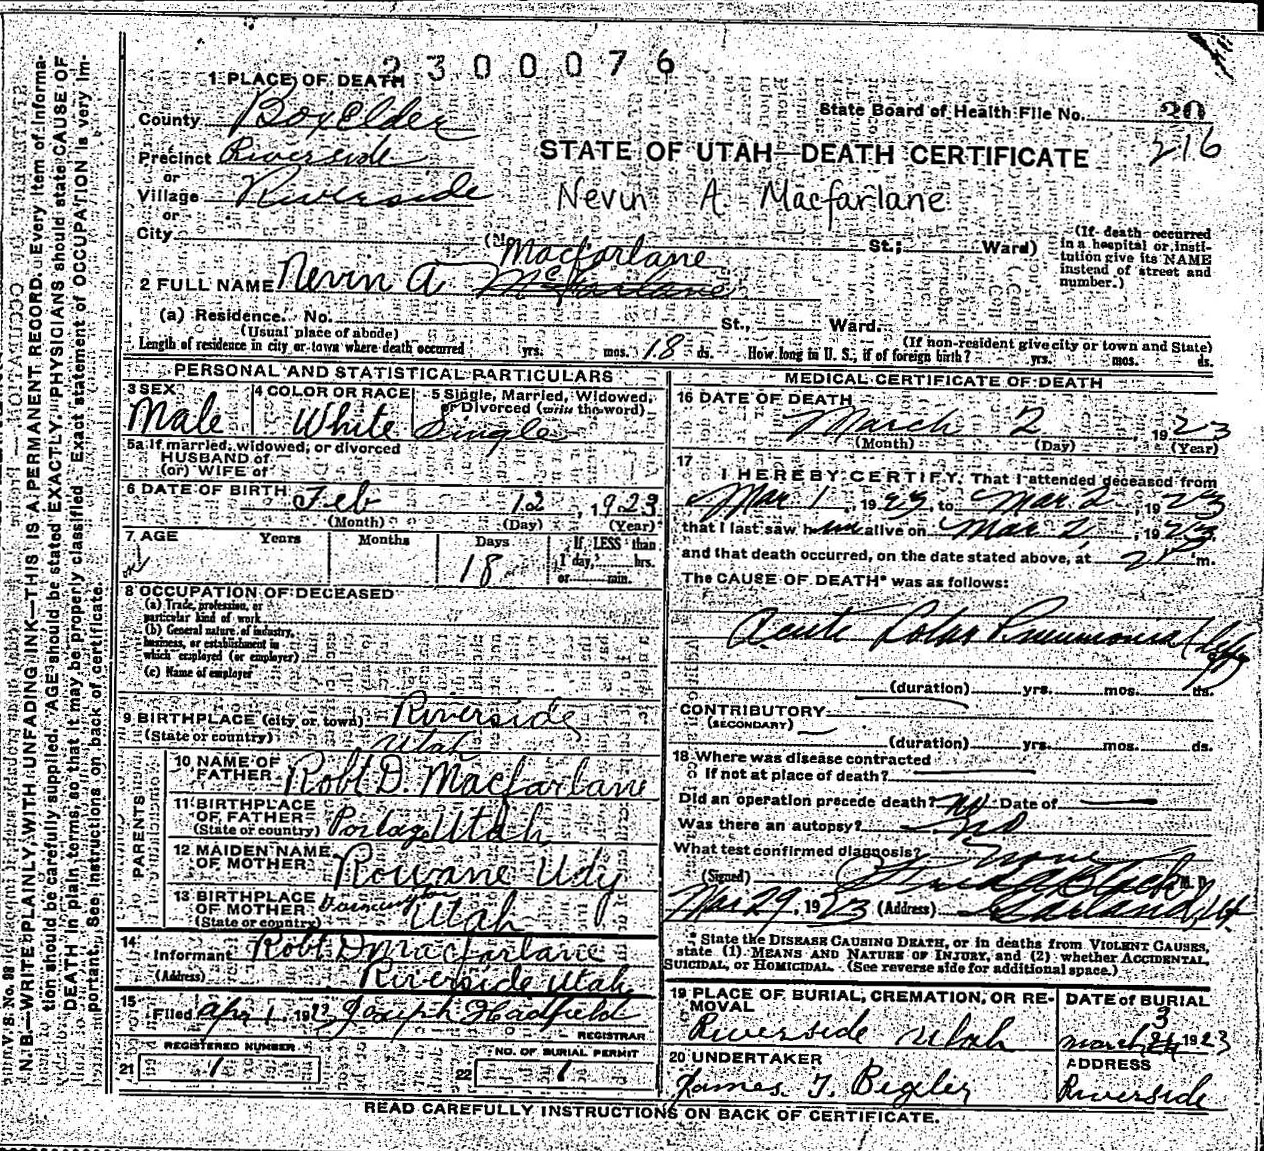 2300076
1 PLACE OF DEATH
State Board of Health File No. 20
216
County Box Elder
Precinct Riverside
or
Village Riverside
or
City
STATE OF UTAH—DEATH CERTIFICATE
Nevin A. Macfarlane
(No. St.; Ward)
(If death occurred in a hospital or institution give its NAME instead of street and number.)
Macfarlane
2 FULL NAME Nevin A. McFarlane
(a) Residence. No. St., Ward.
(Usual place of abode) (If non-resident give city or town and State)
Length of residence in city or town where death occurred yrs. mos. 18 ds. How long in U. S., if of foreign birth? yrs. mos. ds.
PERSONAL AND STATISTICAL PARTICULARS
3 SEX
Male
4 COLOR OR RACE
White
5 Single, Married, Widowed, or Divorced (write the word)
Single
5a If married, widowed, or divorced
HUSBAND of
(or) WIFE of
6 DATE OF BIRTH Feb 12, 1923
(Month) (Day) (Year)
7 AGE Years Months Days If LESS than
18 1 day, hrs.
or min.
8 OCCUPATION OF DECEASED
(a) Trade, profession, or
particular kind of work
(b) General nature of industry,
business, or establishment in
which employed (or employer)
(c) Name of employer
9 BIRTHPLACE (city or town) Riverside
(State or country) Utah
PARENTS
10 NAME OF
FATHER Robt D. Macfarlane
11 BIRTHPLACE
OF FATHER
(State or country) Portage Utah
12 MAIDEN NAME
OF MOTHER Rowane Udy
13 BIRTHPLACE
OF MOTHER Farmington
(State or country) Utah
14
Informant Robt D Macfarlane
(Address) Riverside Utah
15
Filed Apr 1, 1923 Joseph Hadfield
REGISTRAR
REGISTERED NUMBER
21 1
NO. OF BURIAL PERMIT
22 1
MEDICAL CERTIFICATE OF DEATH
16 DATE OF DEATH
March 2, 1923
(Month) (Day) (Year)
17
I HEREBY CERTIFY, That I attended deceased from
Mar. 1, 1923, to Mar. 2, 1923
that I last saw him alive on Mar 2, 1923,
and that death occurred, on the date stated above, at 2 P m.
The CAUSE OF DEATH* was as follows:
Acute Lobar Pneumonia
(duration) yrs. mos. ds.
CONTRIBUTORY
(SECONDARY)
(duration) yrs. mos. ds.
18 Where was disease contracted
If not at place of death?
Did an operation precede death? no Date of
Was there an autopsy? no
What test confirmed diagnosis? None
(Signed) M. D.
Mar 29, 1923 (Address) Garland, Ut.
* State the DISEASE CAUSING DEATH, or in deaths from VIOLENT CAUSES,
state (1) MEANS AND NATURE OF INJURY, and (2) whether ACCIDENTAL,
SUICIDAL, or HOMICIDAL. (See reverse side for additional space.)
19 PLACE OF BURIAL, CREMATION, OR REMOVAL
Riverside Utah
DATE of BURIAL
3
March 1923
20 UNDERTAKER
James T. Bigler
ADDRESS
Riverside
READ CAREFULLY INSTRUCTIONS ON BACK OF CERTIFICATE.
N. B.—WRITE PLAINLY, WITH UNFADING INK—THIS IS A PERMANENT RECORD. Every item of information should be carefully supplied. AGE should be stated EXACTLY. PHYSICIANS should state CAUSE OF DEATH in plain terms, so that it may be properly classified. Exact statement of OCCUPATION is very important. See instructions on back of certificate.